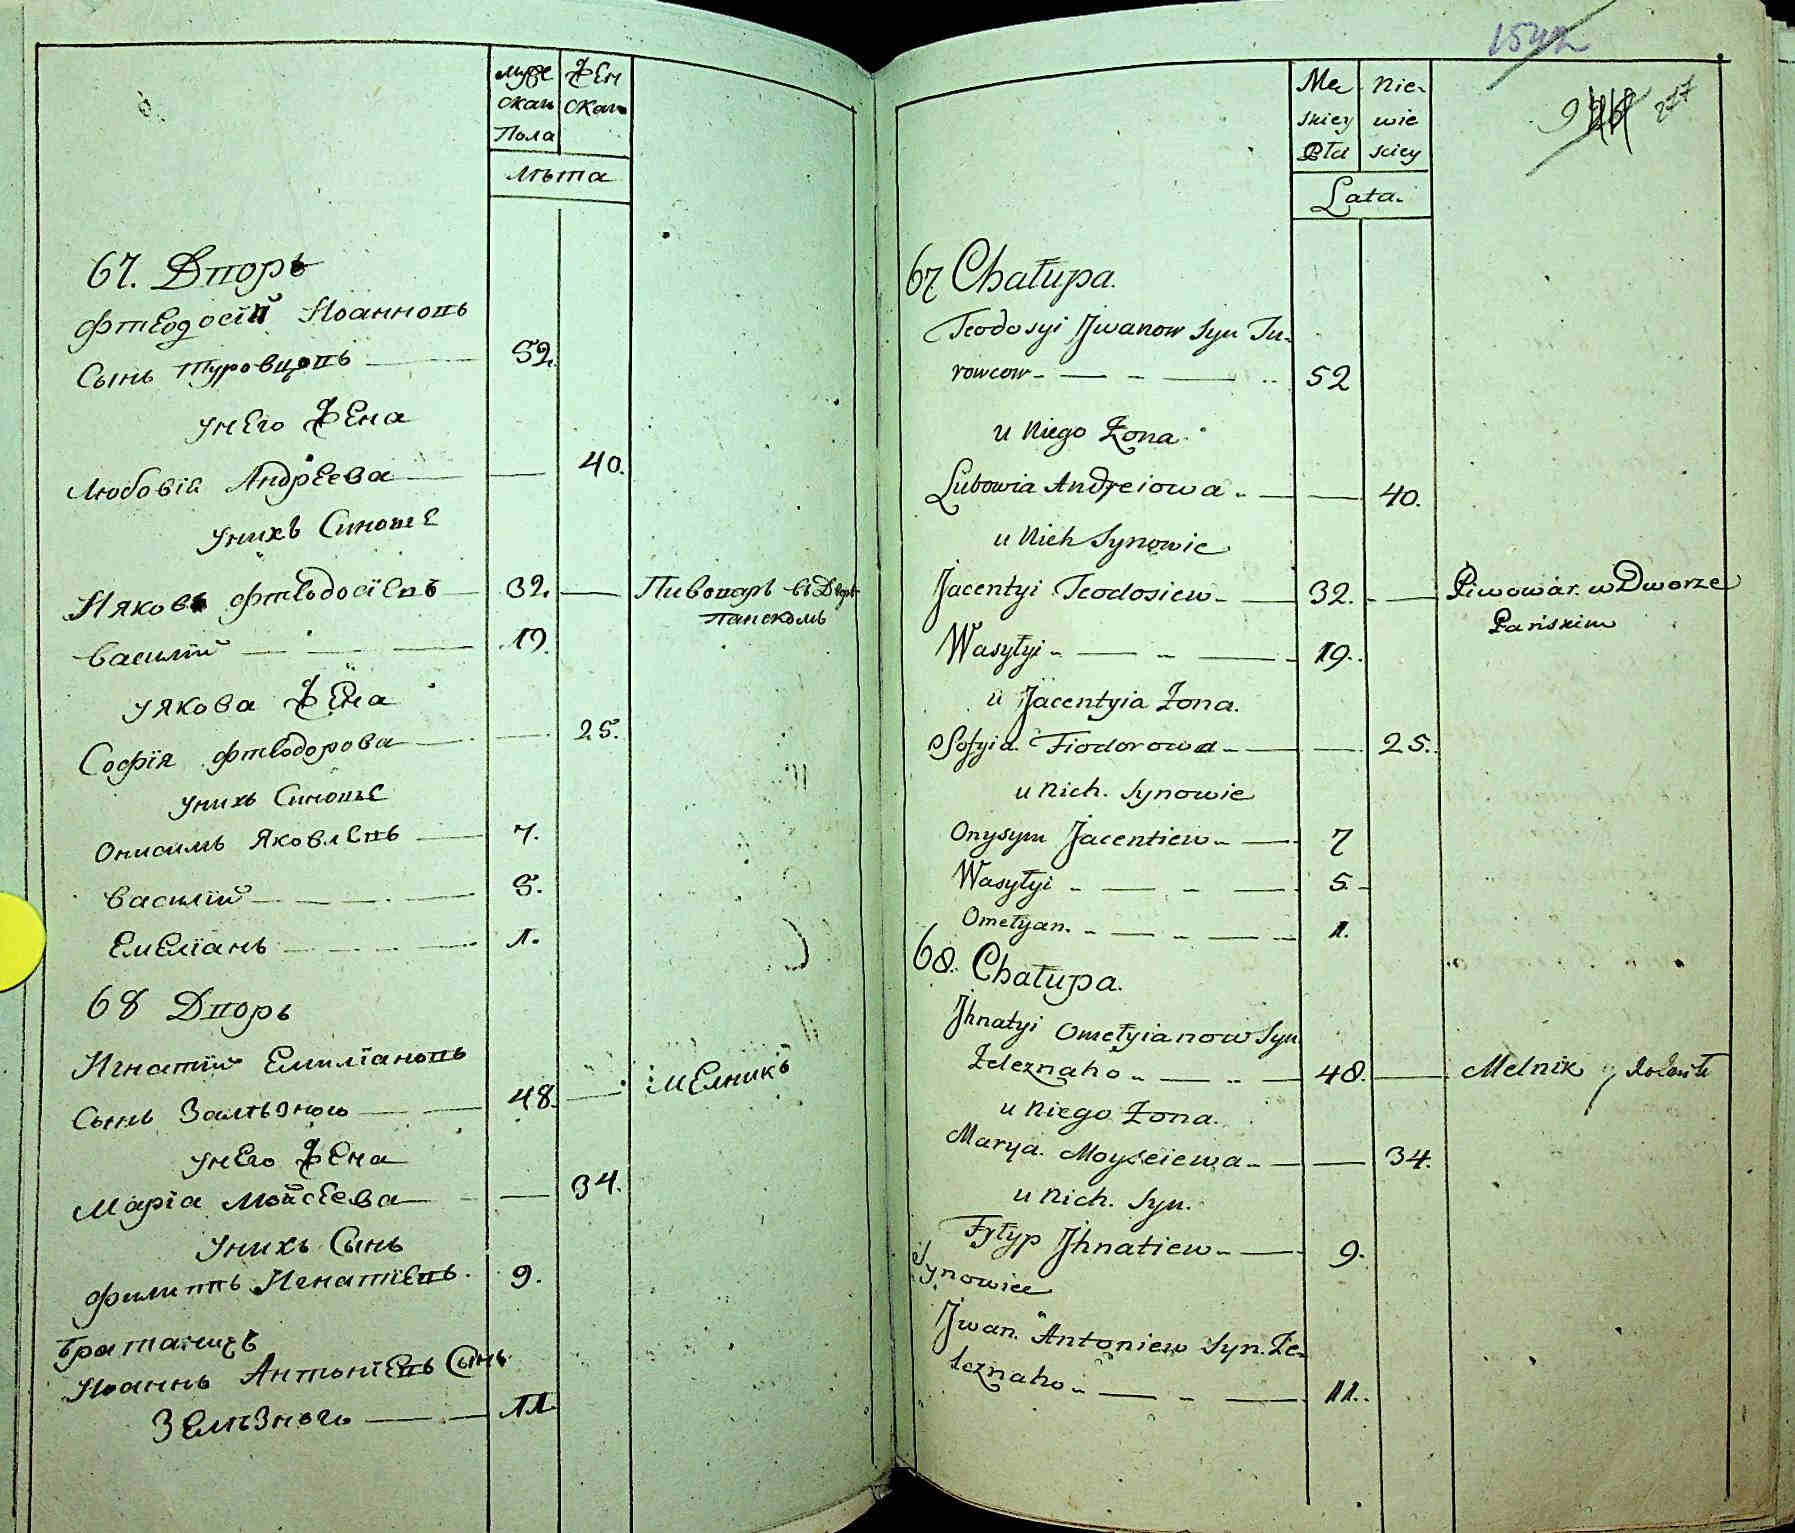 мужескаи Пола
женскаи
лѣта
67. Дворъ
Фтеодосїй Иоанновъ
Сынъ Туровцовъ 52.
унего жена
Любовія Андреева 40.
унихъ Синовье
Ияковъ Фтеодосїевъ 32. Пивоваръ въ Дворѣ
Панскомъ
Василїй 19.
уякова жена
Софїя Фтеодорова 25.
унихъ Синовье
Онисимъ Яковлевъ 7.
Василїй 5.
Емелїанъ 1.
68 Дворъ
Игнатїй Емилїановъ
Сынъ Залѣзного 48. Мелникъ
унего жена
Марїа Мойсеева 34.
унихъ Сынъ
Филиппъ Игнатїевъ. 9.
братаничъ
Иоаннъ Антонїевъ Сынъ
Зелѣзного 11
Męskiey Płci
Niewieskiey
Lata.
277
67 Chałupa.
Teodosyi Jwanow Syn Tu-
rowcow 52
u Niego Żona.
Lubowia Andreiowa 40.
u Nich Synowie
Jacentyi Teodosiew 32. Piwowar w Dworze
Pańskim
Wasyłyi 19.
u Jacentyia Żona.
Sofyia Fiodorowa 25.
u Nich. Synowie
Onysym Jacentiew 7
Wasyłyi 5
Omełyan. 1.
68. Chałupa.
Jhnatyi Omełyianow Syn
Żeleznaho 48. Melnik
u Niego Żona.
Marya. Moyseiewa 34.
u Nich. Syn.
Fyłyp Jhnatiew 9.
Synowiec
Jwan. Antoniew Syn. Że-
leznaho 11.